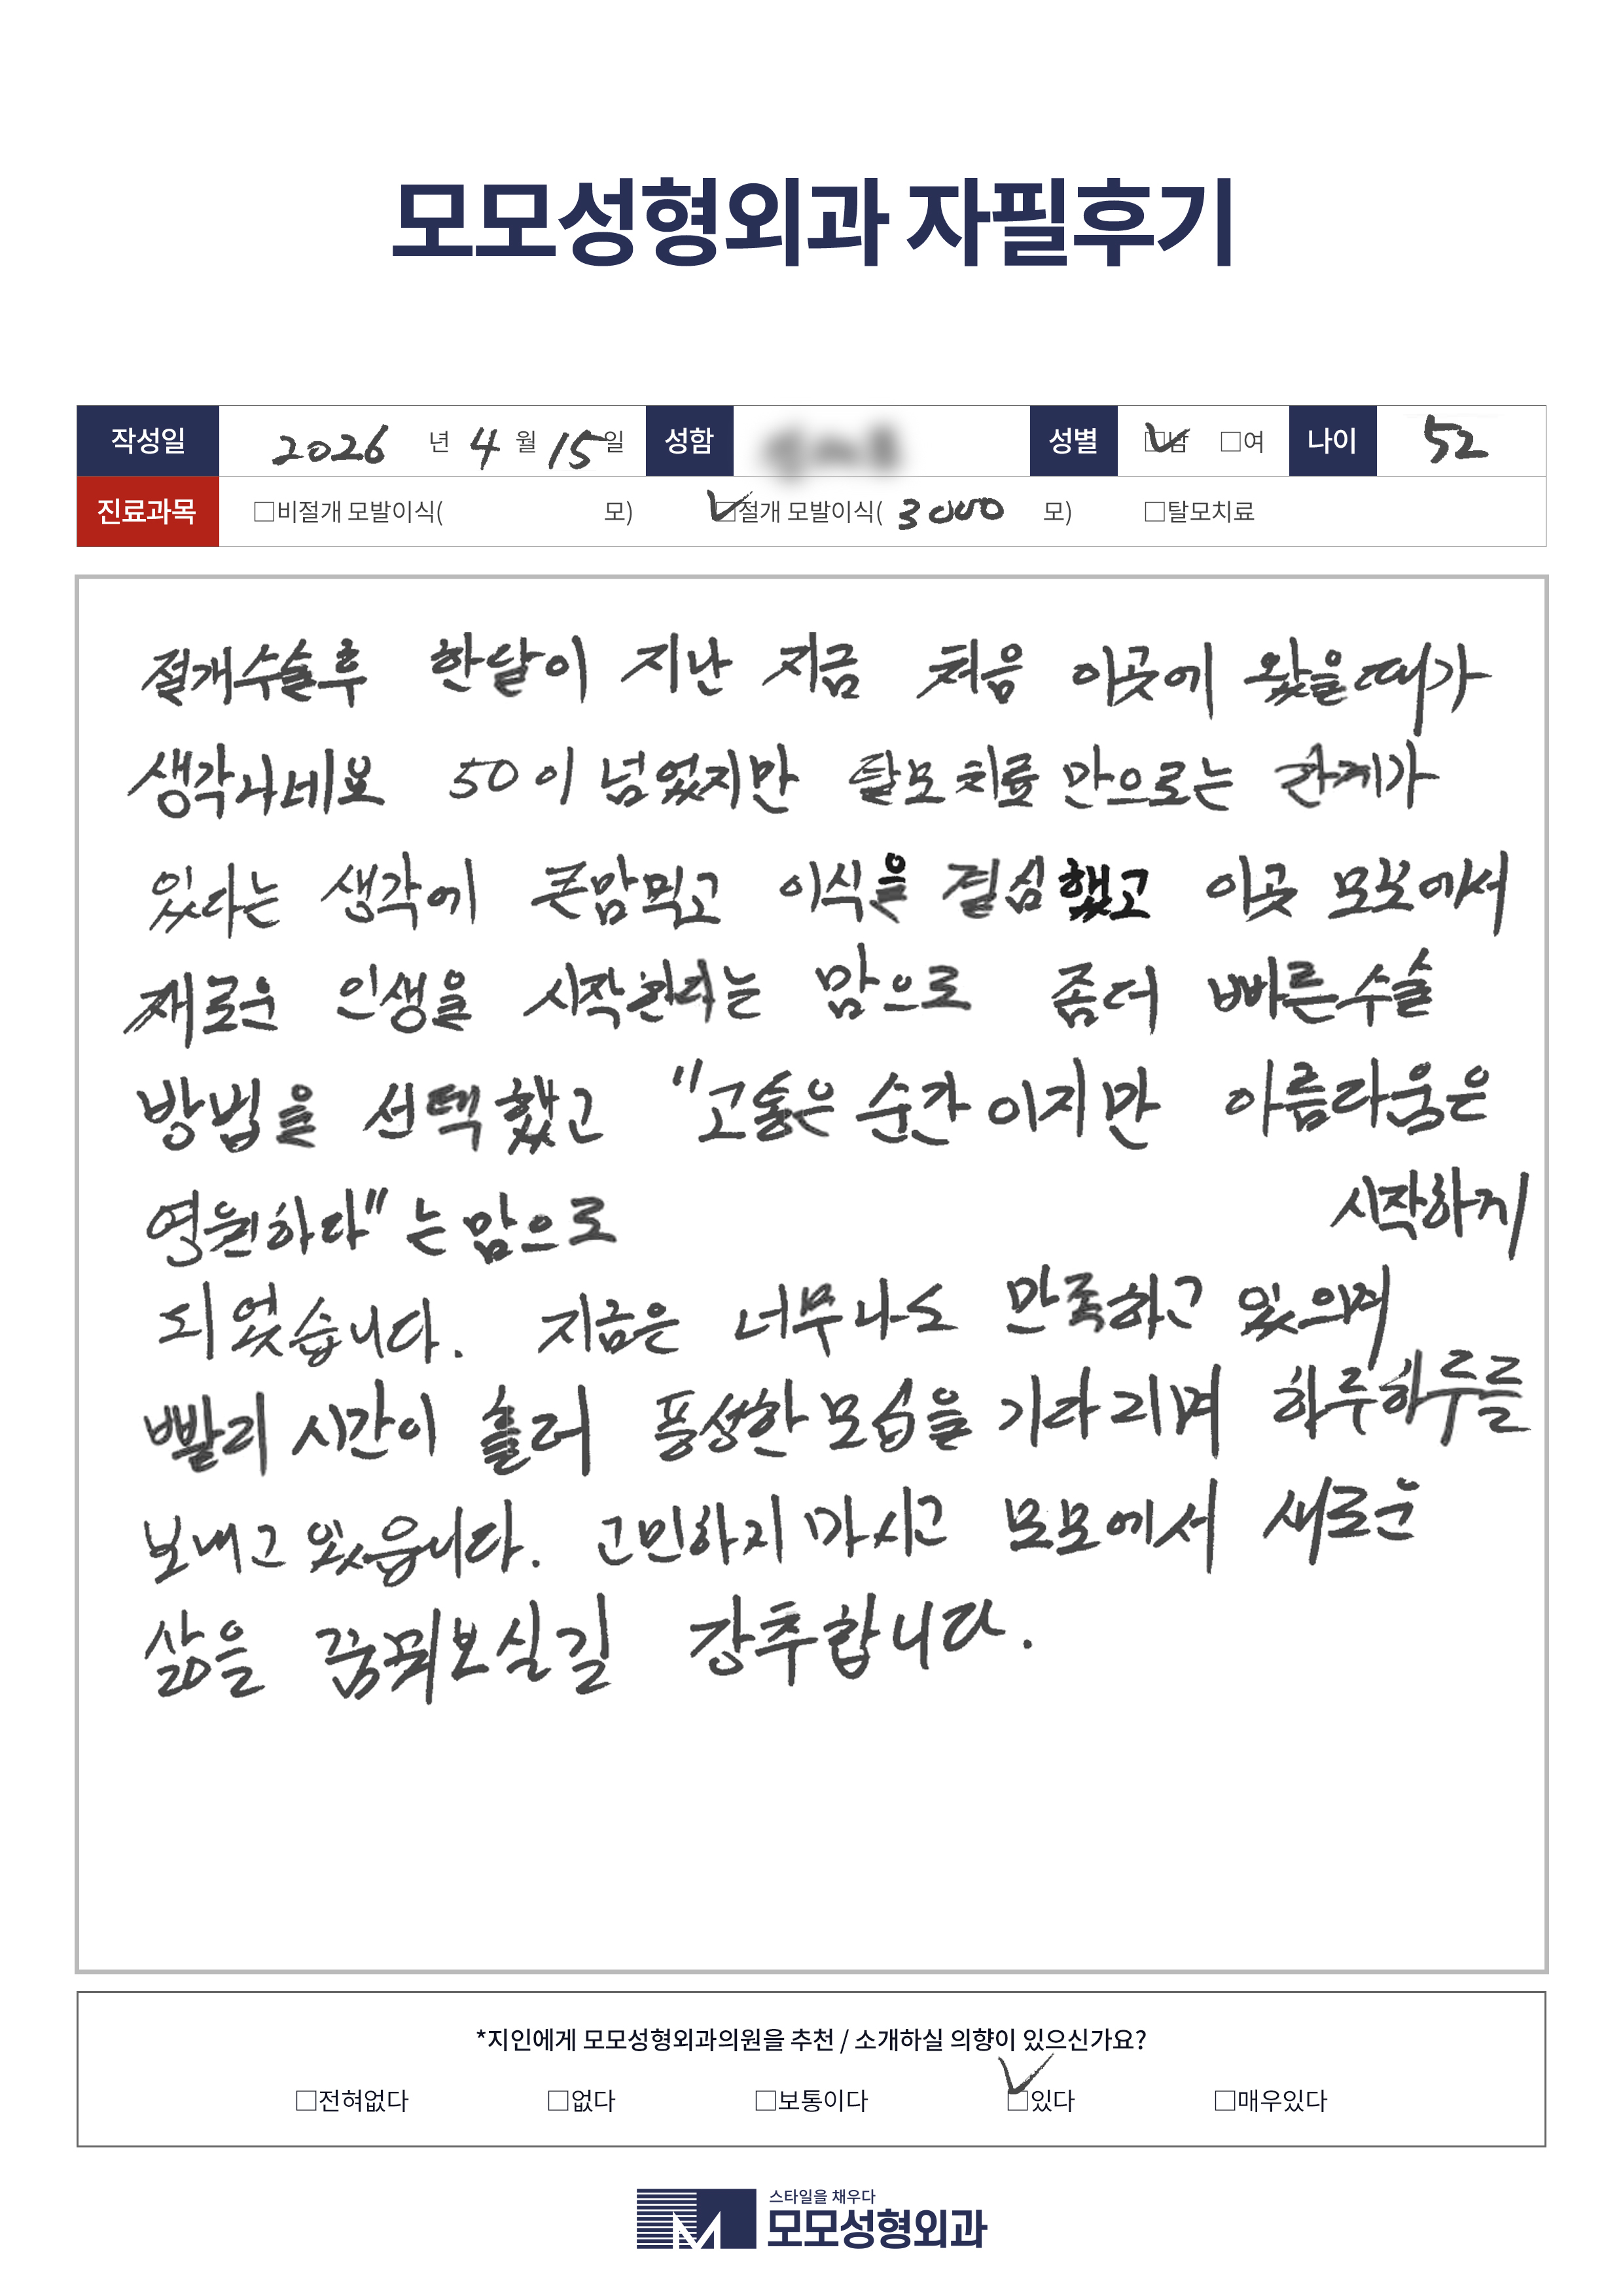 모모성형외과 자필후기
작성일 2026 년 4 월 15 일 성함 성별 ☑남 □여 나이 52
진료과목 □비절개 모발이식( 모) ☑절개 모발이식( 3000 모) □탈모치료
절개수술후 한달이 지난 지금 처음 이곳에 왔을때가
생각나네요 50이 넘었지만 탈모치료만으로는 한계가
있다는 생각에 큰맘먹고 이식을 결심했고 이곳 모모에서
새로운 인생을 시작한다는 맘으로 좀더 빠른수술
방법을 선택했고 "고통은 순간이지만 아름다움은
영원하다"는 맘으로 시작하게
되었습니다. 지금은 너무나도 만족하고 있으며
빨리 시간이 흘러 풍성한 모습을 기다리며 하루하루를
보내고 있읍니다. 고민하지마시고 모모에서 새로운
삶을 꿈꿔보실길 강추합니다.
*지인에게 모모성형외과의원을 추천 / 소개하실 의향이 있으신가요?
□전혀없다 □없다 □보통이다 ☑있다 □매우있다
스타일을 채우다
모모성형외과